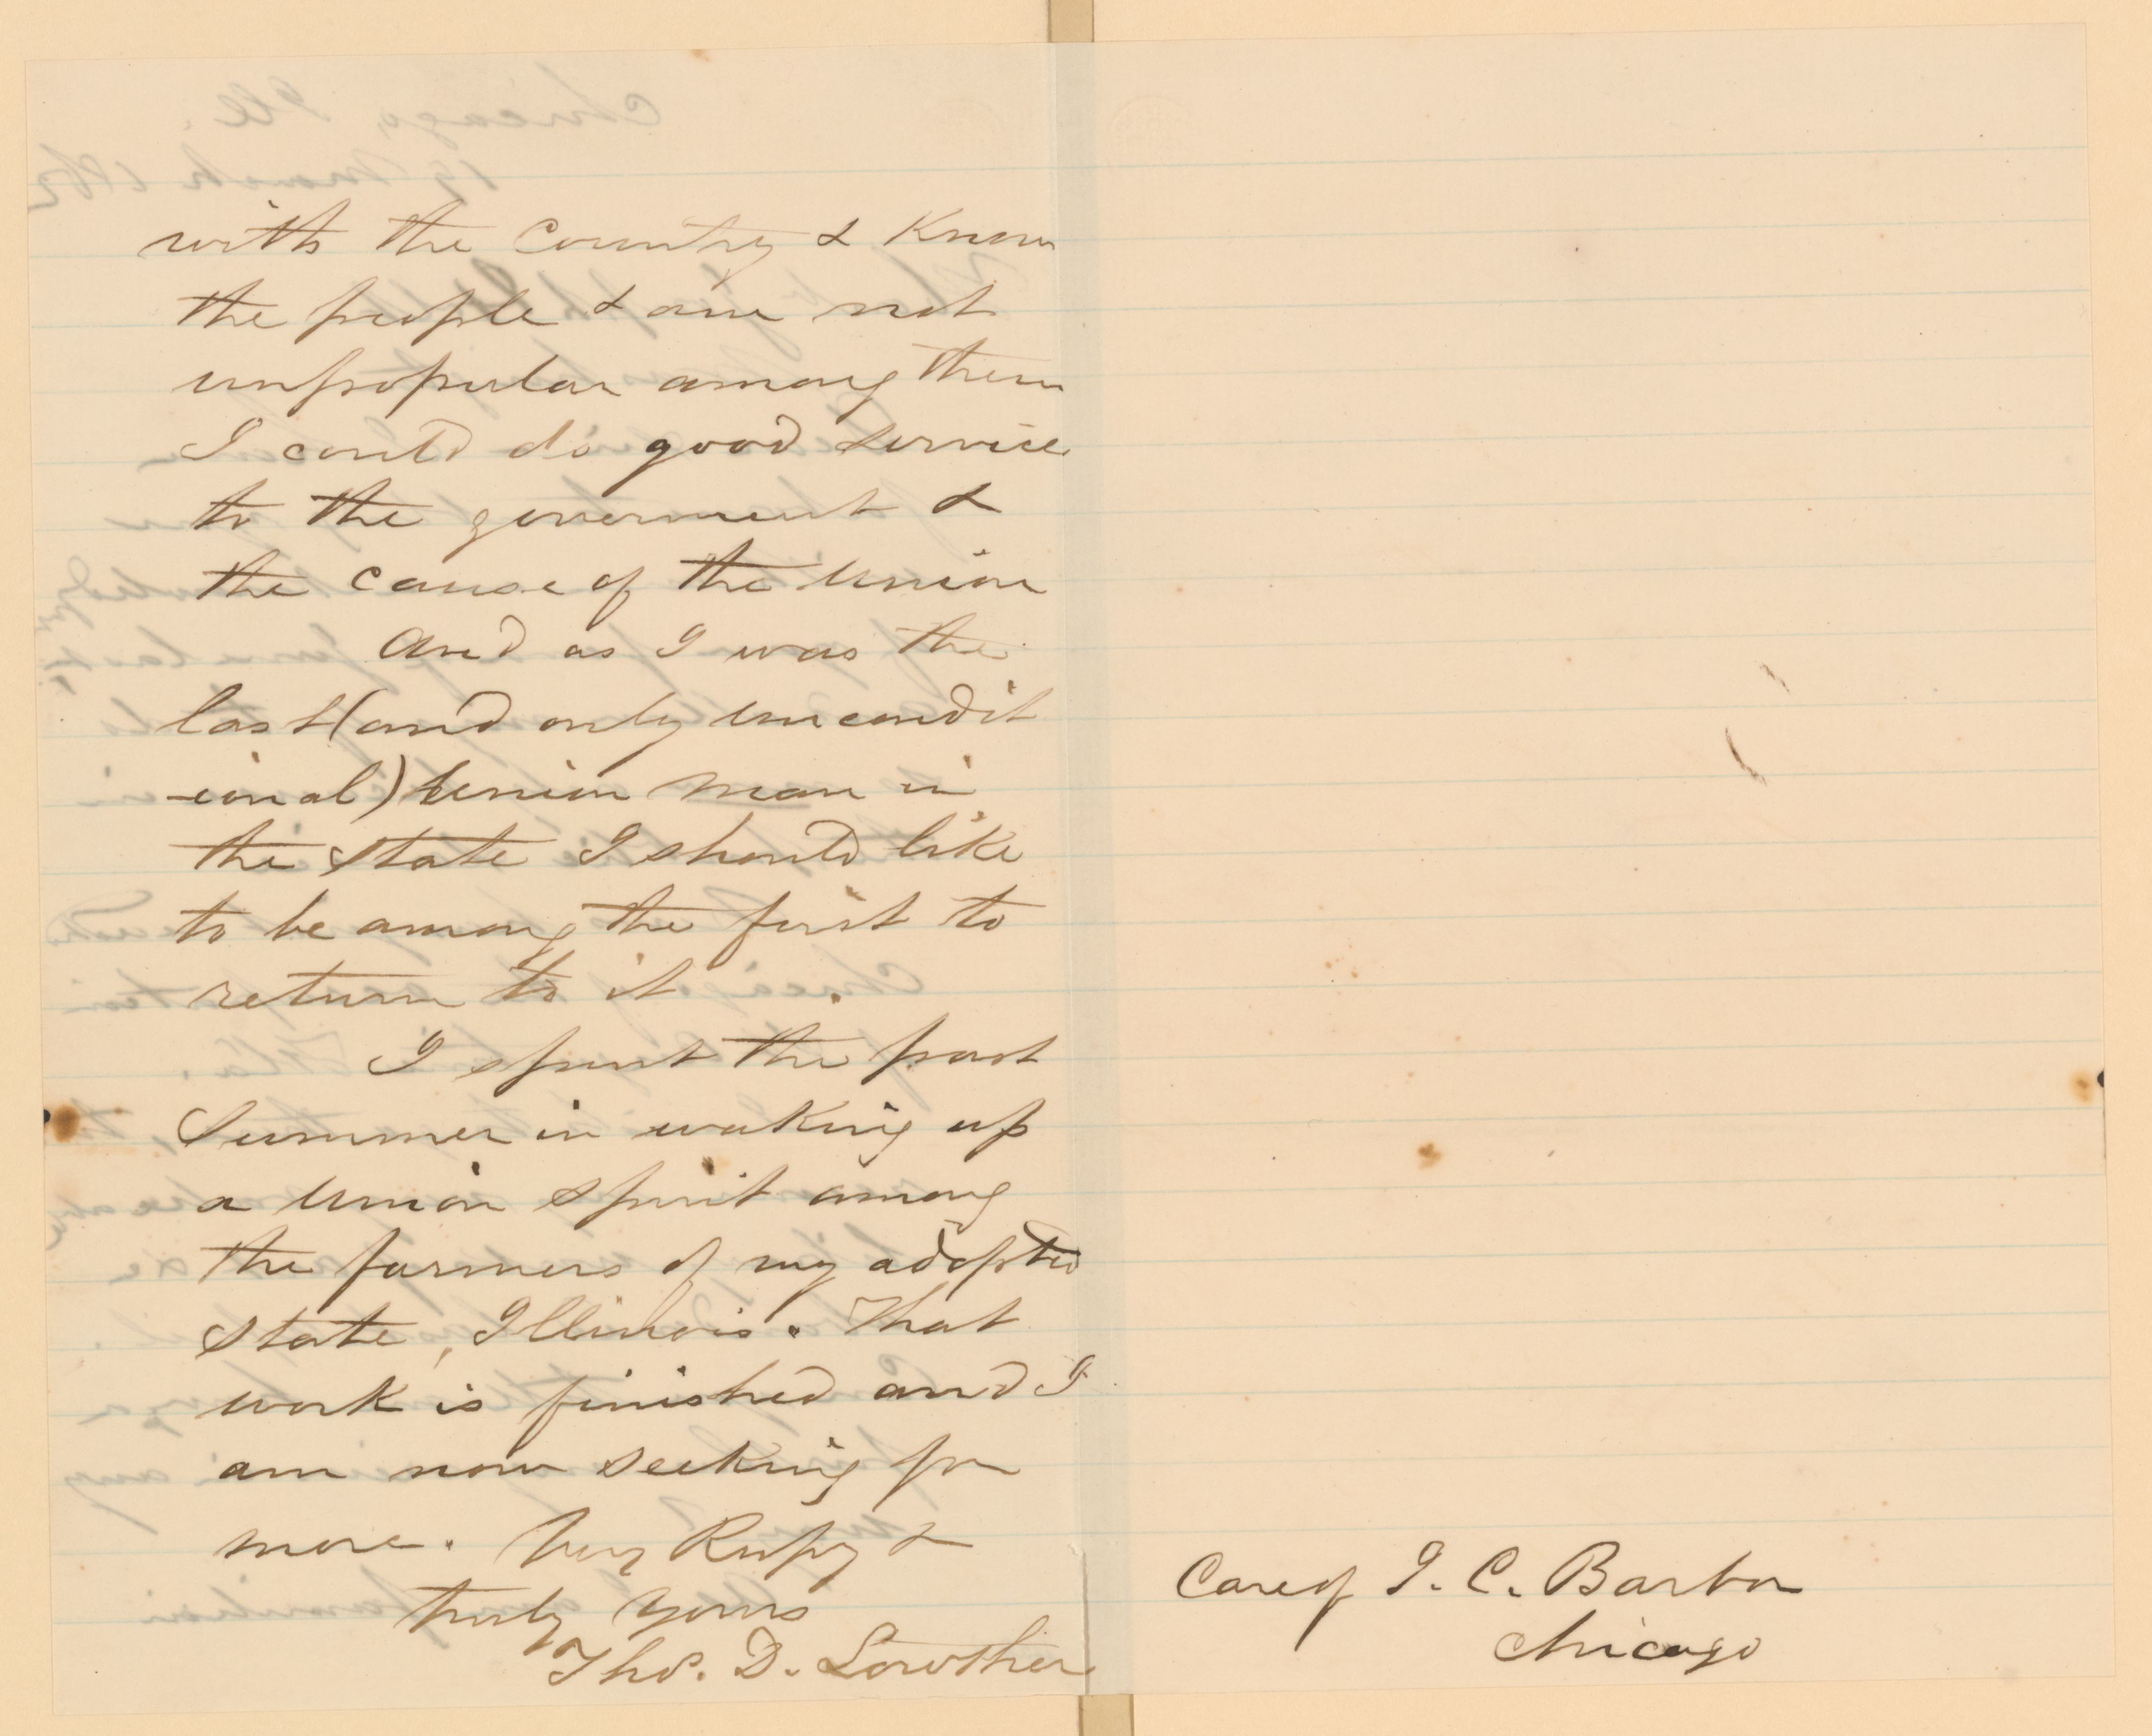 with the Country & Know
the people & am not
unpopular among them
I could do good service
to the goverment &
the cause of the Union
And as I was the
last (and only uncondit
-ional) Union man in
the State I should like
to be among the first to
return to it.
I spent the past
Summer in waking up
a Union spirit among
the farmers of my adopted
State, Illinois. That
work is finished and I
am now seeking for
more. Very Rspfy &
truly yours
Thos. D. Lowther
Care of I. C. Barbor
Chicago